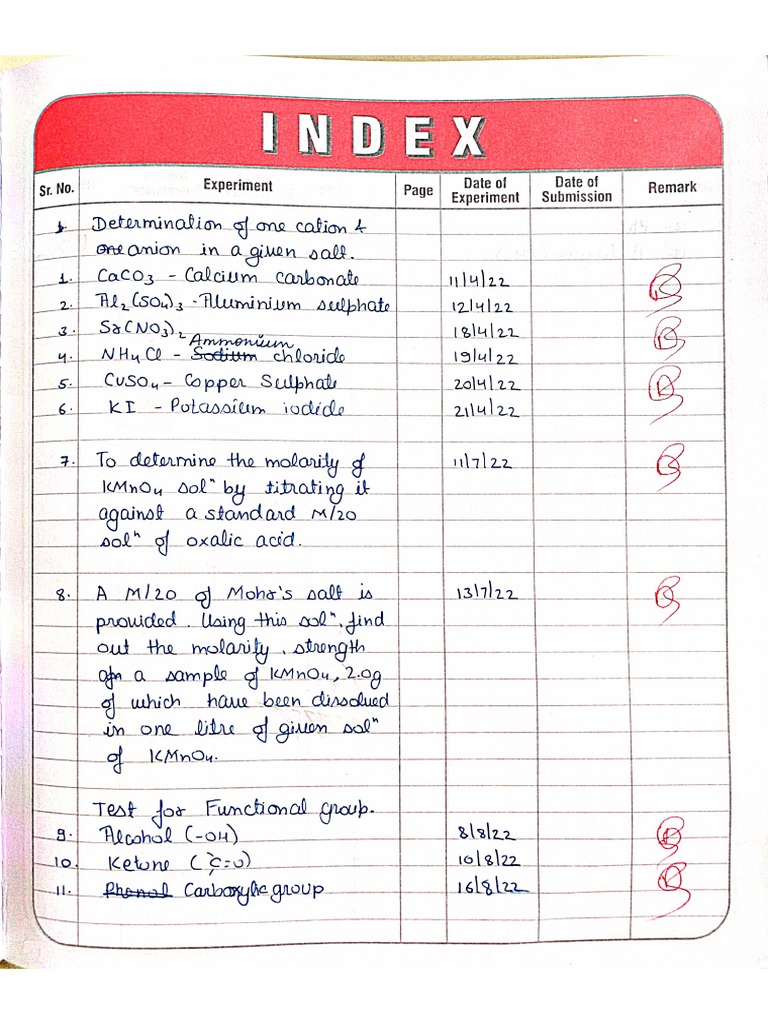 INDEX
Sr. No. Experiment Page Date of Experiment Date of Submission Remark
Determination of one cation &
anion in a given salt.
1. CaCO3 - Calcium carbonate 11/4/22
2. Al2(SO4)3 - Aluminium sulphate 12/4/22
3. Sr(NO3)2 18/4/22
Ammonium
4. NH4Cl - Sodium chloride 19/4/22
5. CuSO4 - Copper Sulphate 20/4/22
6. KI - Potassium iodide 21/4/22
7. To determine the molarity of 11/7/22
KMnO4 solⁿ by titrating it
against a standard M/20
solⁿ of oxalic acid.
8. A M/20 of Mohr's salt is 13/7/22
provided. Using this solⁿ, find
out the molarity, strength
a sample of KMnO4, 2.0g
of which have been dissolved
in one litre of given solⁿ
of KMnO4.
Test for Functional group.
9. Alcohol (-OH) 8/8/22
10. Ketone (>C=O) 10/8/22
11. Phenol Carboxylic group 16/8/22